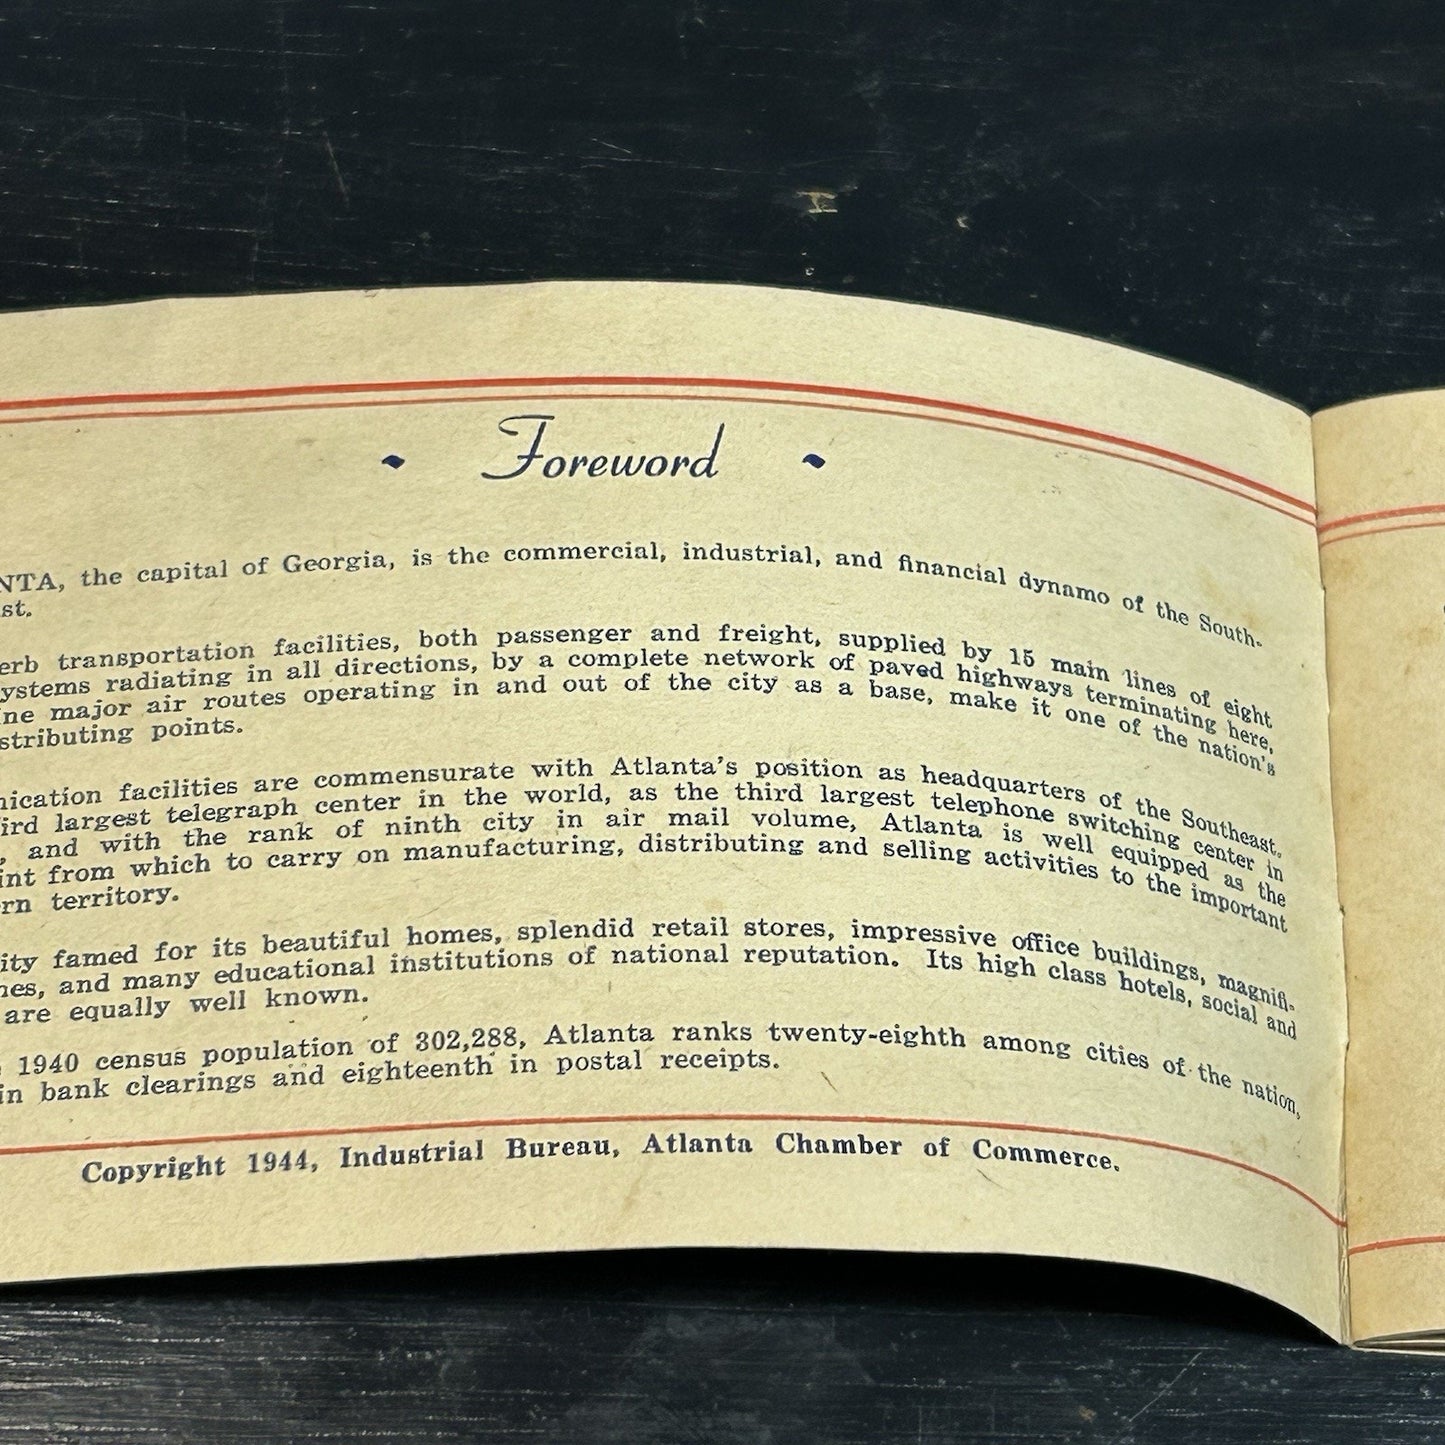 Foreword
NTA, the capital of Georgia, is the commercial, industrial, and financial dynamo of the South-
st.
erb transportation facilities, both passenger and freight, supplied by 15 main lines of eight
ystems radiating in all directions, by a complete network of paved highways terminating here,
ne major air routes operating in and out of the city as a base, make it one of the nation's
stributing points.
nication facilities are commensurate with Atlanta's position as headquarters of the Southeast.
ird largest telegraph center in the world, as the third largest telephone switching center in
, and with the rank of ninth city in air mail volume, Atlanta is well equipped as the
int from which to carry on manufacturing, distributing and selling activities to the important
rn territory.
ity famed for its beautiful homes, splendid retail stores, impressive office buildings, magnifi-
es, and many educational institutions of national reputation. Its high class hotels, social and
are equally well known.
1940 census population of 302,288, Atlanta ranks twenty-eighth among cities of the nation,
in bank clearings and eighteenth in postal receipts.
Copyright 1944, Industrial Bureau, Atlanta Chamber of Commerce.